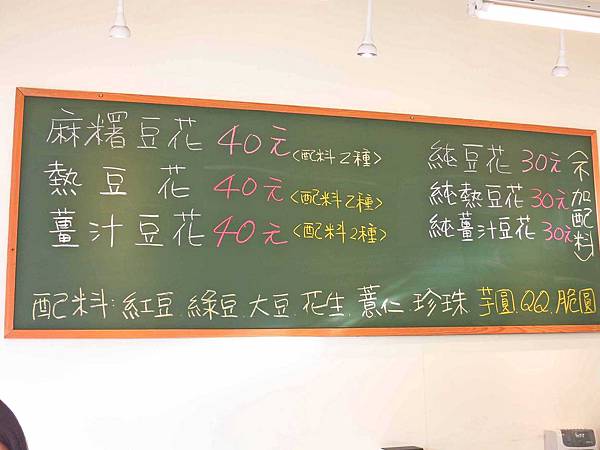 麻糬豆花 40元<配料2種>
熱豆花 40元<配料2種>
薑汁豆花40元<配料2種>
純豆花 30元
純熱豆花 30元
純薑汁豆花 30元
(不加配料)
配料:紅豆.綠豆.大豆.花生.薏仁.珍珠.芋圓.QQ.脆圓